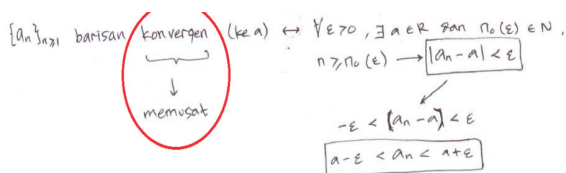 {an}n≥1 barisan konvergen (ke a) ↔ ∀ε>0, ∃ a ∈ R dan n₀(ε) ∈ N,
n ≥ n₀(ε) → |an - a| < ε
↓
memusat
-ε < (an - a) < ε
a-ε < an < a+ε